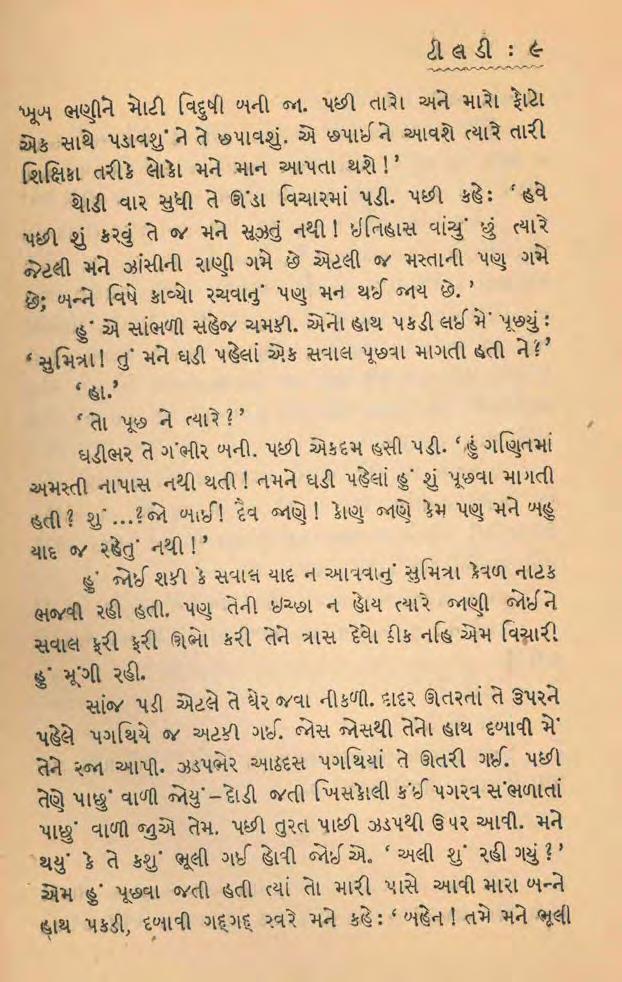 ટી લ ડી : ૯
ખૂબ ભણીને મોટી વિદુષી બની જા. પછી તારો અને મારો ફોટો
એક સાથે પડાવશું ને તે છપાવશું. એ છપાઈ ને આવશે ત્યારે તારી
શિક્ષિકા તરીકે લોકો મને માન આપતા થશે !’
થોડી વાર સુધી તે ઊંડા વિચારમાં પડી. પછી કહે: ‘ હવે
પછી શું કરવું તે જ મને સૂઝતું નથી ! ઈતિહાસ વાંચું છું ત્યારે
જેટલી મને ઝાંસીની રાણી ગમે છે એટલી જ મસ્તાની પણ ગમે
છે; બન્ને વિષે કાવ્યો રચવાનું પણ મન થઈ જાય છે. ’
હું એ સાંભળી સહેજ ચમકી. એનો હાથ પકડી લઈ મેં પૂછ્યું :
‘ સુમિત્રા ! તું મને ઘડી પહેલાં એક સવાલ પૂછવા માગતી હતી ને ?’
‘ હા.’
‘ તો પૂછ ને ત્યારે ?’
ઘડીભર તે ગંભીર બની. પછી એકદમ હસી પડી. ‘ હું ગણિતમાં
અમસ્તી નાપાસ નથી થતી ! તમને ઘડી પહેલાં હું શું પૂછવા માગતી
હતી ? શું ...? જો બાઈ ! દૈવ જાણે ! કોણ જાણે કેમ પણ મને બહુ
યાદ જ રહેતું નથી !’
હું જોઈ શકી કે સવાલ યાદ ન આવવાનું સુમિત્રા કેવળ નાટક
ભજવી રહી હતી. પણ તેની ઇચ્છા ન હોય ત્યારે જાણી જોઈને
સવાલ ફરી ફરી ઊભો કરી તેને ત્રાસ દેવો ઠીક નહિ એમ વિચારી
હું મૂંગી રહી.
સાંજ પડી એટલે તે ઘેર જવા નીકળી. દાદર ઊતરતાં તે ઉપરને
પહેલે પગથિયે જ અટકી ગઈ. જોસ જોસથી તેનો હાથ દબાવી મેં
તેને રજા આપી. ઝડપભેર આઠદસ પગથિયાં તે ઊતરી ગઈ. પછી
તેણે પાછું વાળી જોયું–દોડી જતી ખિસકોલી કંઈ પગરવ સંભળાતાં
પાછું વાળી જુએ તેમ. પછી તુરત પાછી ઝડપથી ઉપર આવી. મને
થયું કે તે કશું ભૂલી ગઈ હોવી જોઈએ. ‘ અલી શું રહી ગયું ?’
એમ હું પૂછવા જતી હતી ત્યાં તો મારી પાસે આવી મારા બન્ને
હાથ પકડી, દબાવી ગદ્ગદ્ સ્વરે મને કહે: ‘ બહેન ! તમે મને ભૂલી